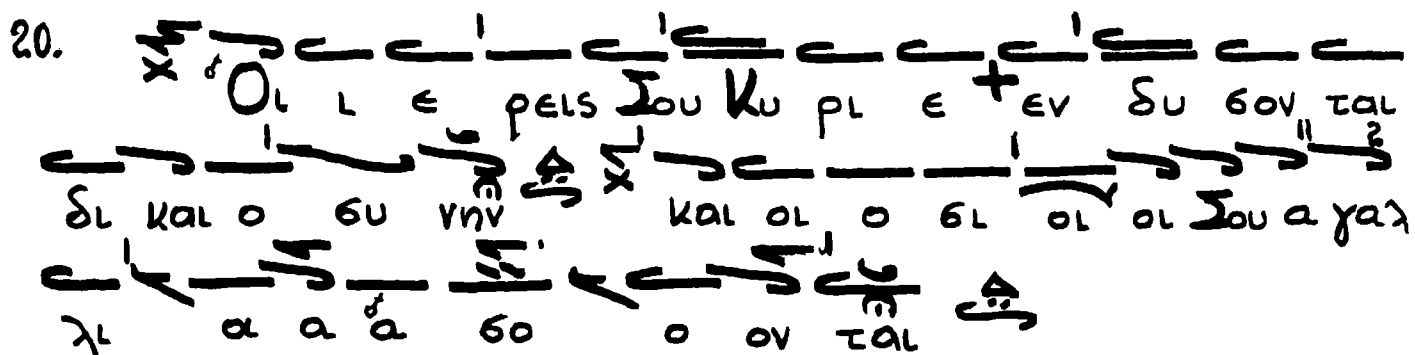 20. Οι ι ε ρεις Σου Κυ ρι ε + εν δυ σον ται
δι και ο συ νην και οι ο σι οι οι Σου α γαλ
λι α α α σο ο ον ται